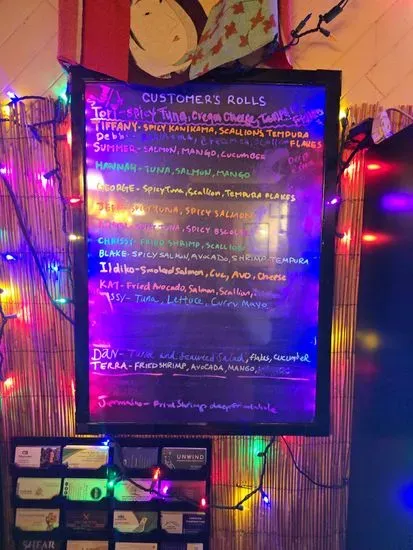 CUSTOMER'S ROLLS
Tori - Spicy Tuna, Cream Cheese, Flakes
TIFFANY - SPICY KANIKAMA, SCALLIONS TEMPURA
FLAKES
Debbi
SUMMER - SALMON, MANGO, CUCUMBER
HANNAH - TUNA, SALMON, MANGO
GEORGE - Spicy Tuna, Scallion, TEMPURA FLAKES
JEFF - SPICY TUNA, SPICY SALMON
TUNA, SPICY ESCOLAR
CHRISSY - FRIED SHRIMP, SCALLION
BLAKE - SPICY SALMON, AVOCADO, SHRIMP TEMPURA
Ildiko - Smoked Salmon, Cuc, AVO, Cheese
KAT - Fried Avocado, Salmon, Scallion,
ssy - Tuna, Lettuce, Curry Mayo
DAN - Tuna and Seaweed Salad, flakes, cucumber
TERRA - FRIED SHRIMP, AVOCADO, MANGO,
Fried Shrimp
UNWIND
SHEAR